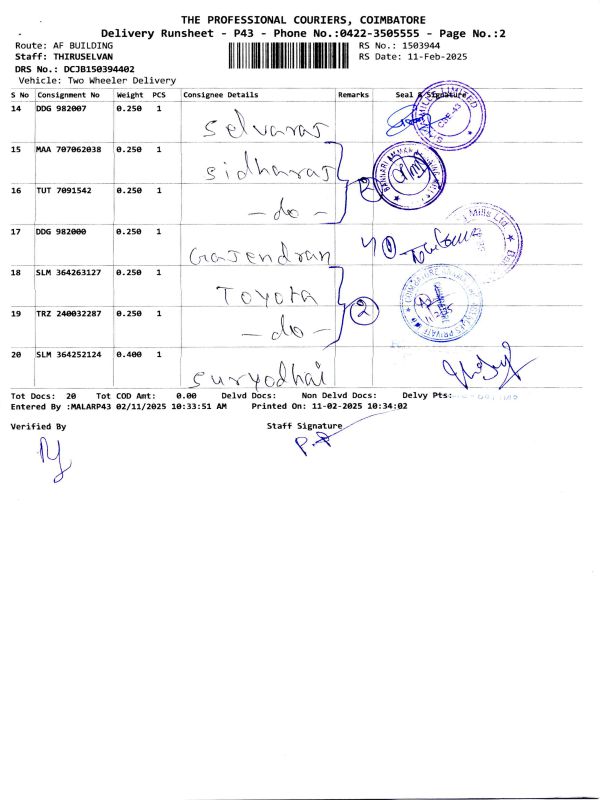 THE PROFESSIONAL COURIERS, COIMBATORE
Delivery Runsheet - P43 - Phone No.:0422-3505555 - Page No.:2
Route: AF BUILDING RS No.: 1503944
Staff: THIRUSELVAN RS Date: 11-Feb-2025
DRS No.: DCJB150394402
Vehicle: Two Wheeler Delivery
S No Consignment No Weight PCS Consignee Details Remarks Seal & Signature
14 DDG 982007 0.250 1
Selvaraj
15 MAA 707062038 0.250 1
Sidharaj
2
16 TUT 7091542 0.250 1
- do -
17 DDG 982000 0.250 1
Gajendran
18 SLM 364263127 0.250 1
TOYOTA
19 TRZ 240032287 0.250 1
2
- do -
20 SLM 364252124 0.400 1
Suryodhai
Tot Docs: 20 Tot COD Amt: 0.00 Delvd Docs: Non Delvd Docs: Delvy Pts:
Entered By :MALARP43 02/11/2025 10:33:51 AM Printed On: 11-02-2025 10:34:02
Verified By Staff Signature